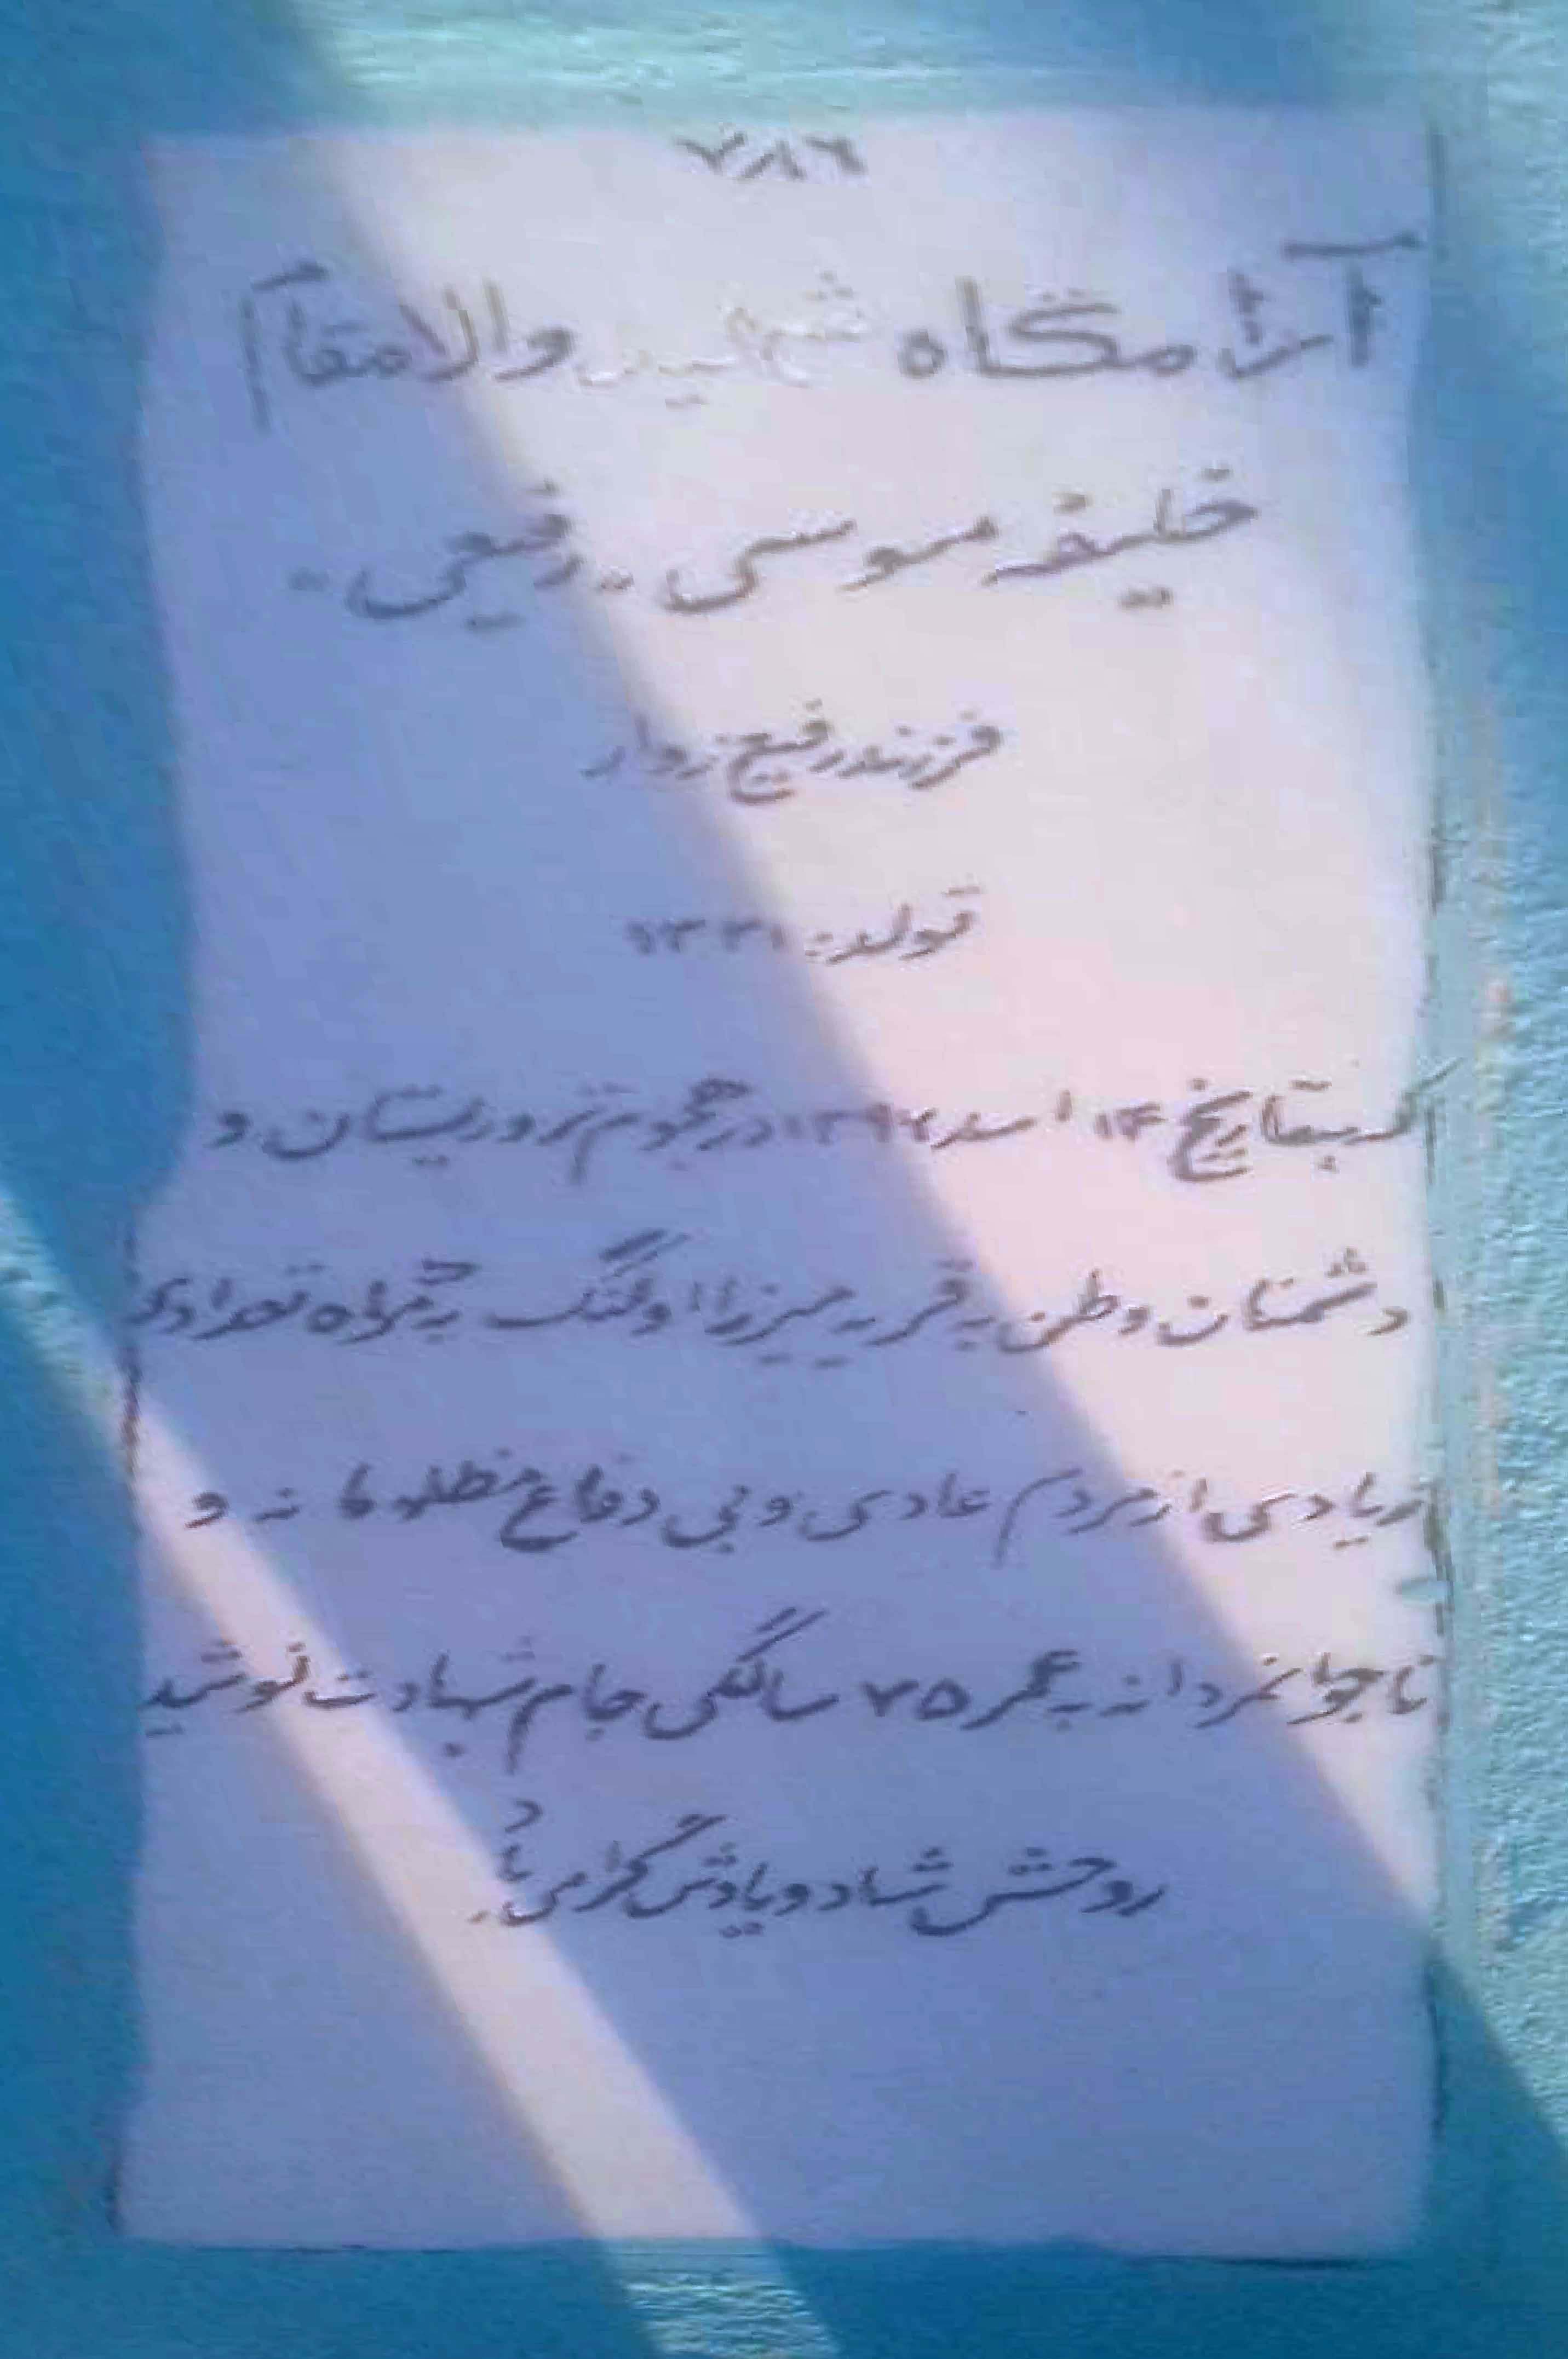 ۷۸۶
آرامگاه شهید والامقام
خلیفه موسی "رفیعی"
فرزند رفیع زوار
تولد: ۱۳۲۱
که بتاریخ ۱۴ اسد ۱۳۹۶ در هجوم تروریستان و
دشمنان وطن به قریه میرزا اولنگ به همراه تعدادی
زیادی از مردم عادی و بی دفاع مظلومانه و
ناجوانمردانه به عمر ۷۵ سالگی جام شهادت نوشید
روحش شاد و یادش گرامی باد.